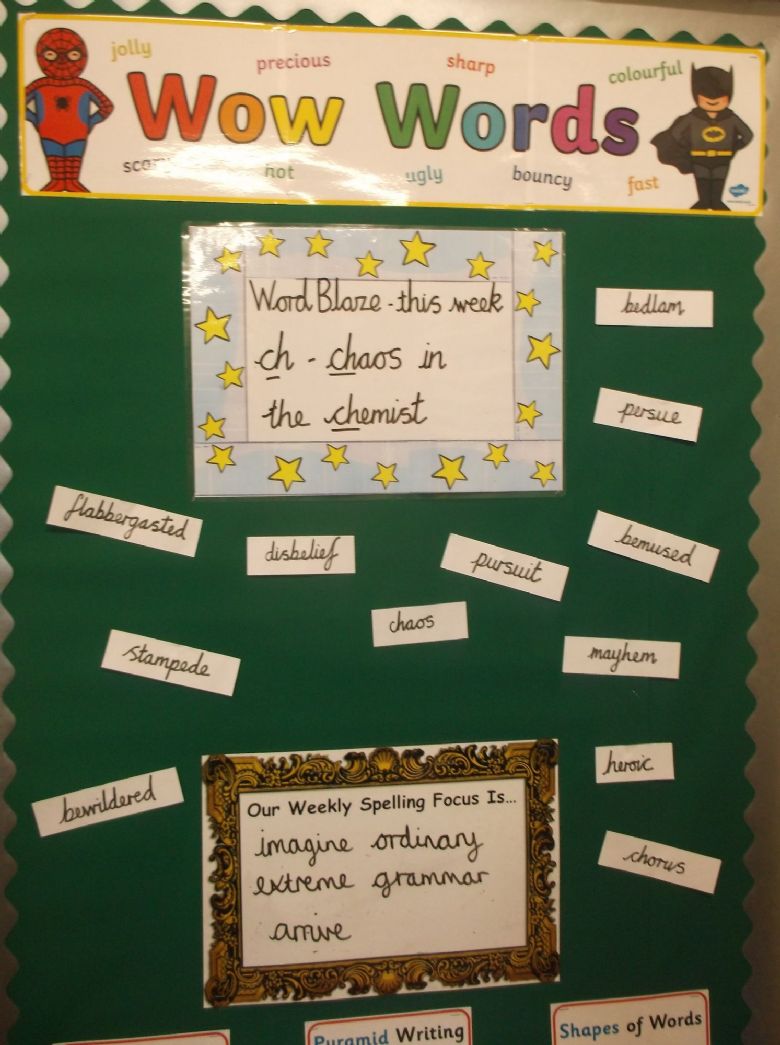 jolly
precious
sharp
colourful
Wow Words
hot
ugly
bouncy
fast
Word Blaze - this week
ch - chaos in
the chemist
bedlam
persue
flabbergasted
disbelief
pursuit
bemused
chaos
stampede
mayhem
heroic
bewildered
chorus
Our Weekly Spelling Focus Is...
imagine ordinary
extreme grammar
arrive
Pyramid Writing
Shapes of Words